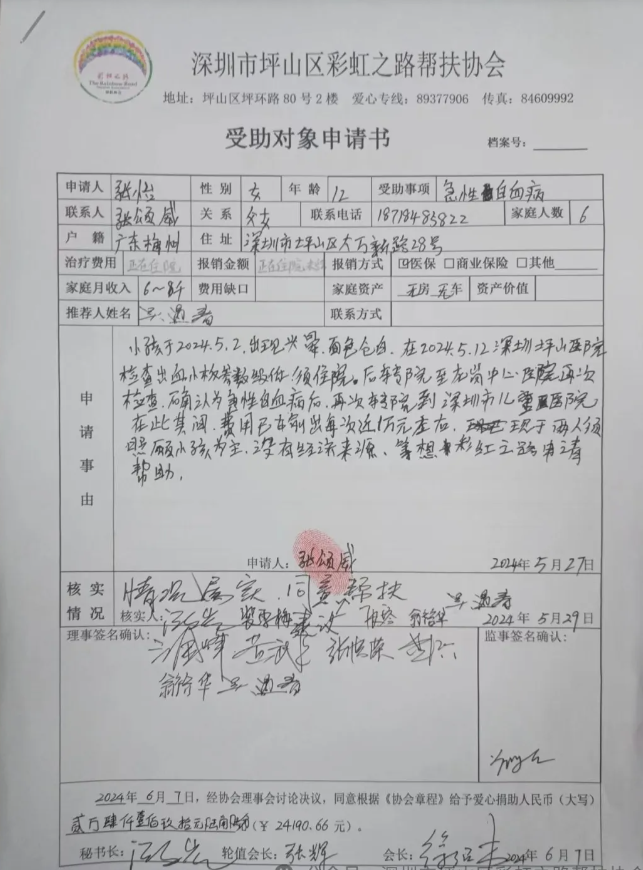 深圳市坪山区彩虹之路帮扶协会
The Rainbow Road
地址：坪山区坪环路80号2楼 爱心专线：89377906 传真：84609992
受助对象申请书
档案号：
申请人 张怡 性别 女 年龄 12 受助事项 急性白血病
联系人 张颂威 关系 父女 联系电话 18718483822 家庭人数 6
户籍 广东梅州 住址 深圳市坪山区大万新路28号
治疗费用 正在住院 报销金额 正在住院 报销方式 ☑医保 □商业保险 □其他
家庭月收入 6～8千 费用缺口 家庭资产 无房无车 资产价值
推荐人姓名 联系方式
申请事由
小孩于2024.5.2.出现头晕.面色仓白.在2024.5.12深圳坪山医院
检查出血小板 须住院。后转院至龙岗中心医院再次
检查.确认为急性白血病后.再次转院到深圳市儿童医院
在此其间.费用已 出每次近1万元左右. 现于两人须
照顾小孩为主.没有经济来源. 想 彩虹之路申请
帮助.
申请人：张颂威 2024年5月27日
核实情况
情况属实.同意帮扶
核实人： 2024年5月29日
理事签名确认： 监事签名确认：
2024年6月7日，经协会理事会讨论决议，同意根据《协会章程》给予爱心捐助人民币（大写）
贰万肆仟壹佰玖拾元陆角陆分（￥24190.66元）。
秘书长： 轮值会长：张辉 会长： 2024年6月7日